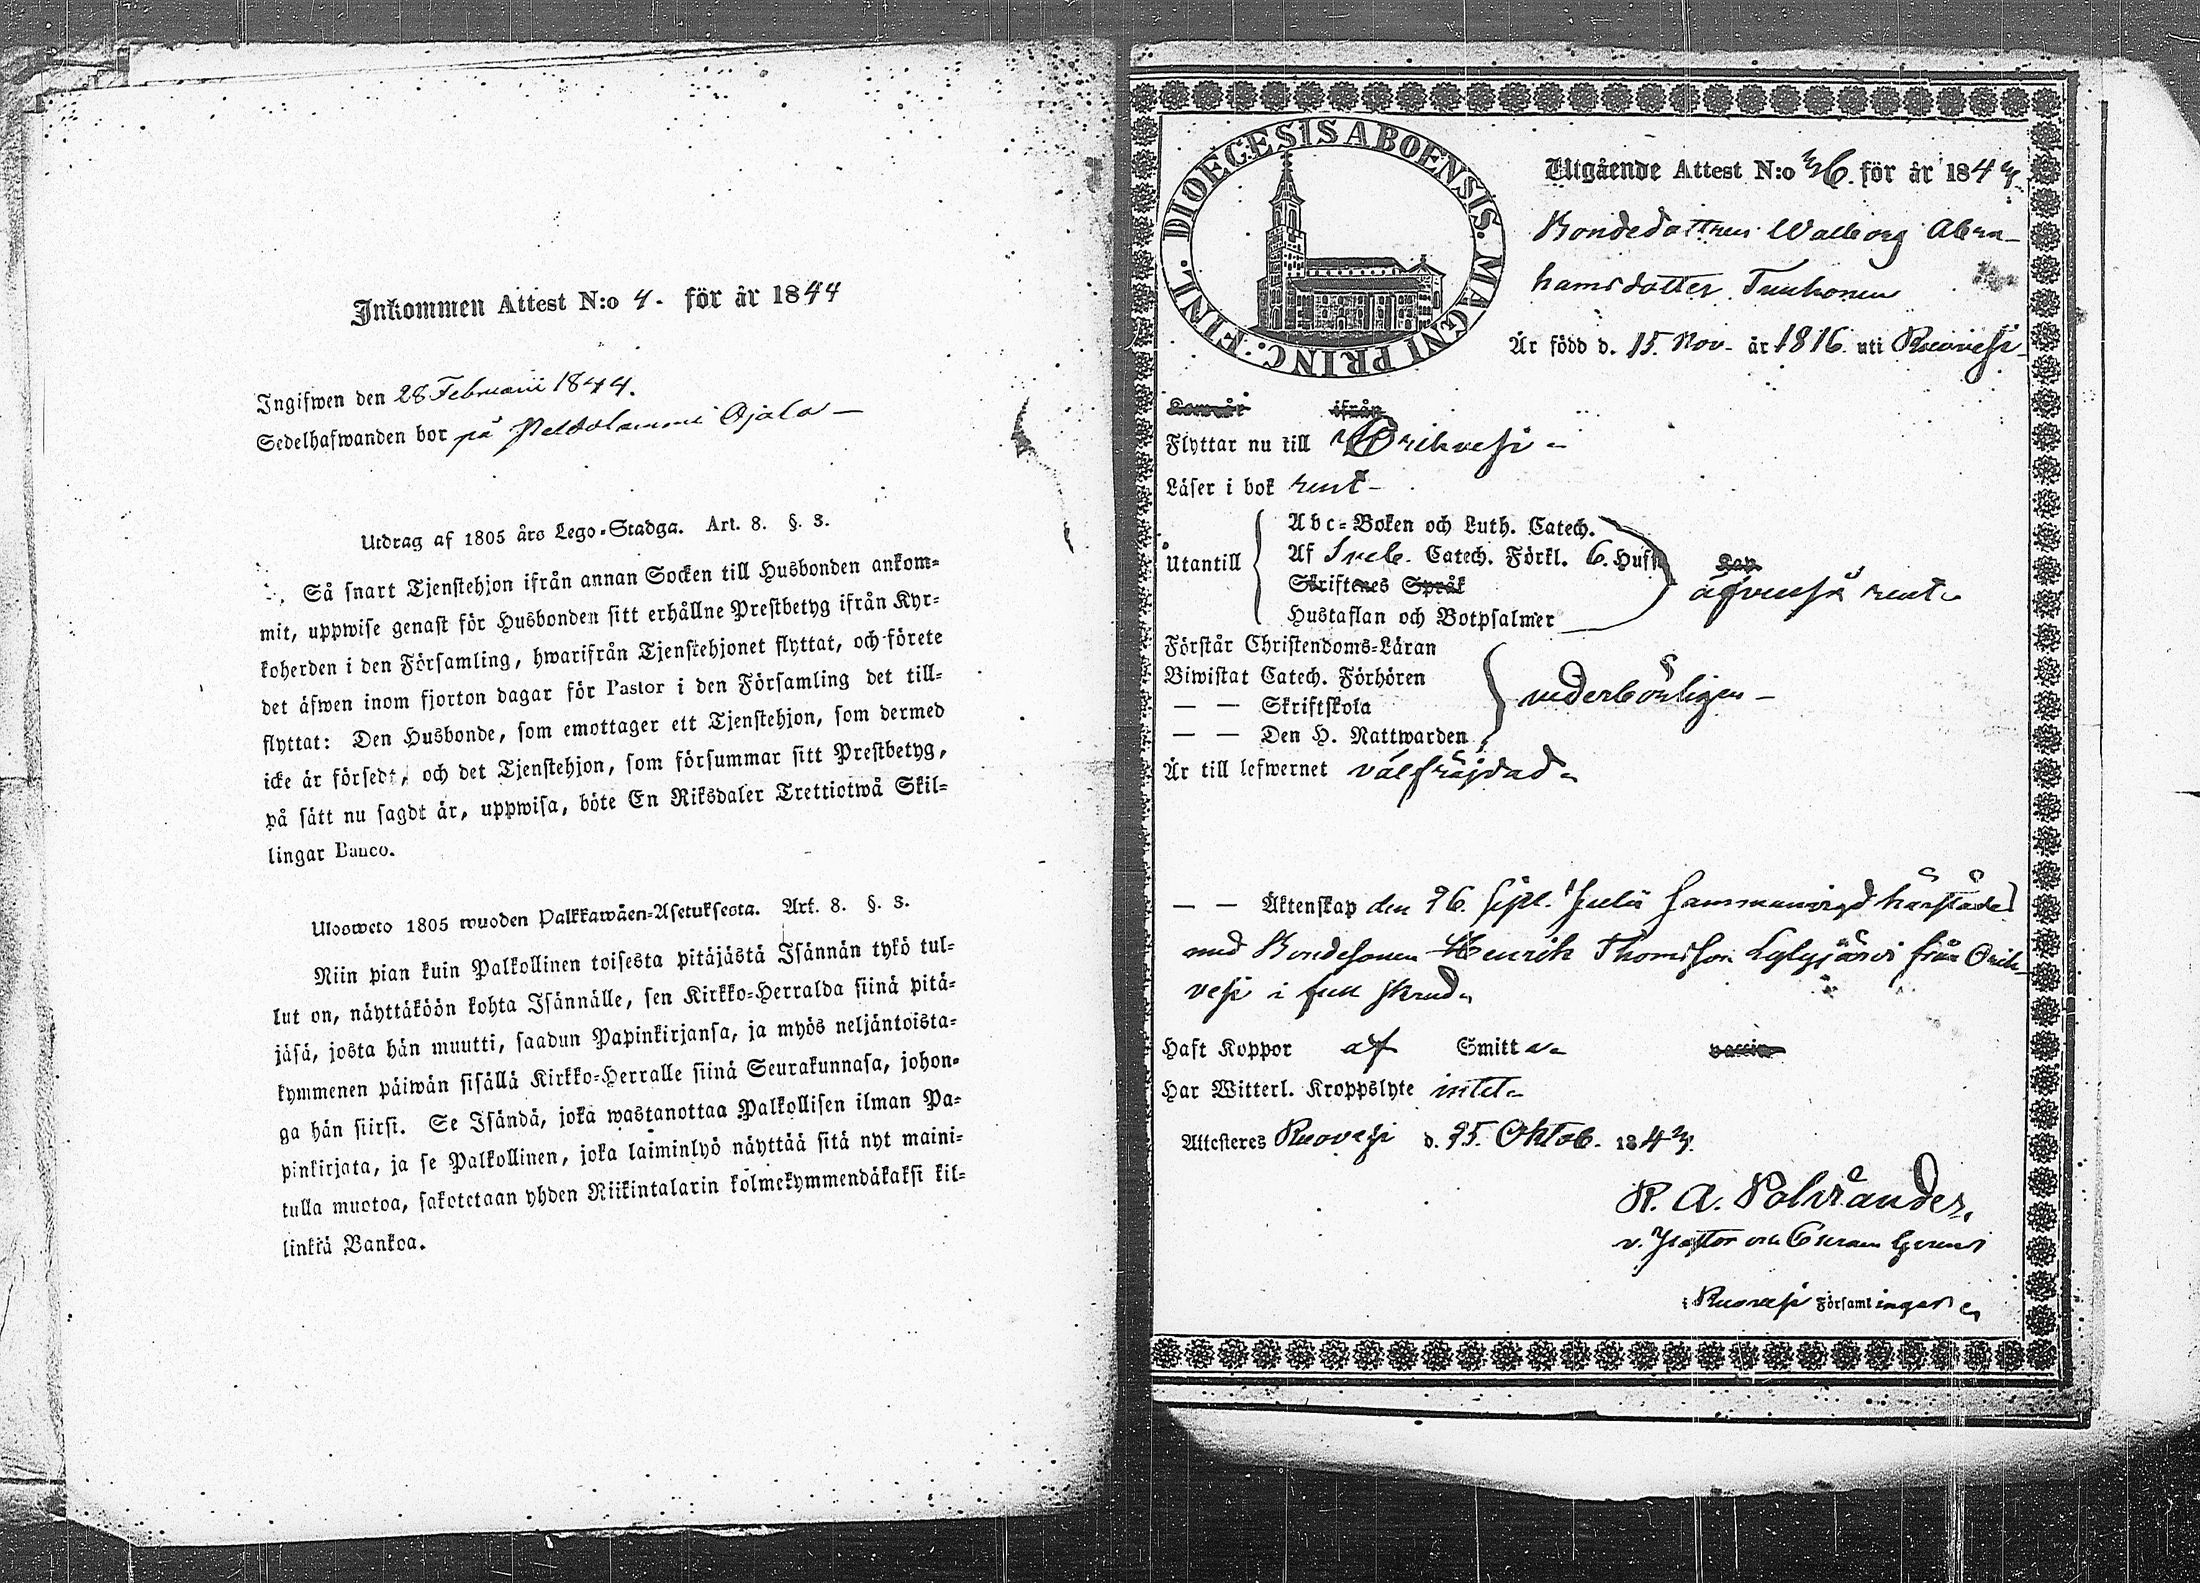 Inkommen Attest N:o 4. för år 1844
Ingifwen den 28 Februarii 1844.
Sedelhafwanden bor på Peldolammi Ojala —
Utdrag af 1805 års Lego-Stadga. Art. 8. §. 3.
Så snart Tjenstehjon ifrån annan Socken till Husbonden ankom-
mit, uppwise genast för Husbonden sitt erhållne Prestbetyg ifrån Kyr-
koherden i den Församling, hwarifrån Tjenstehjonet flyttat, och förete
det äfwen inom fjorton dagar för Pastor i den Församling det till-
flyttat: Den Husbonde, som emottager ett Tjenstehjon, som dermed
icke är försedt, och det Tjenstehjon, som försummar sitt Prestbetyg,
på sätt nu sagdt är, uppwisa, böte En Riksdaler Trettiotwå Skil-
lingar Banco.
Ulosweto 1805 wuoden Palkkawäen-Asetuksesta. Art. 8. §. 3.
Niin pian kuin Palkollinen toisesta pitäjästä Isännän tykö tul-
lut on, näyttäköön kohta Isännälle, sen Kirkko-Herralda siinä pitä-
jäsä, josta hän muutti, saadun Papinkirjansa, ja myös neljäntoista-
kymmenen päiwän sisällä Kirkko-Herralle siinä Seurakunnasa, johon-
ga hän siirsi. Se Isändä, joka wastanottaa Palkollisen ilman Pa-
pinkirjata, ja se Palkollinen, joka laiminlyö näyttää sitä nyt maini-
tulla muotoa, sakotetaan yhden Riikintalarin kolmekymmendäkaksi kil-
linkiä Bankoa.
DIOECESIS ABOENSIS. MAGNI PRINC. FINL.
Utgående Attest N:o 36. för år 1843
Bondedottren Walborg Abra-
hamsdotter Tuuhonen
Är född d. 15. Nov. år 1816. uti Ruovesi
Kom år ifrån
Flyttar nu till Orihvesi -
Läser i bok rent -
Utantill
Abc-Boken och Luth. Catech.
Af Sveb. Catech. Förkl. 6. Hufst. Kap.
Skriftenes Språk
Hustaflan och Botpsalmer
äfvenså rent.
Förstår Christendoms-Läran
Biwistat Catech. Förhören
— — Skriftskola
— — Den H. Nattwarden
vederbörligen —
Är till lefwernet välfräjdad.
— — Äktenskap den 26. sistl. Julii sammanvigd härstädes
med Bondesonen Henrik Thomsson Lylyjärvi från Orih-
vesi i full skrud.
Haft Koppor af Smitta. vaccin
Har Witterl. Kroppslyte intet.
Attesteres Ruovesi d. 25. Oktob. 1843.
R. A. Polviander,
v. Pastor
i Ruovesi Församlingar